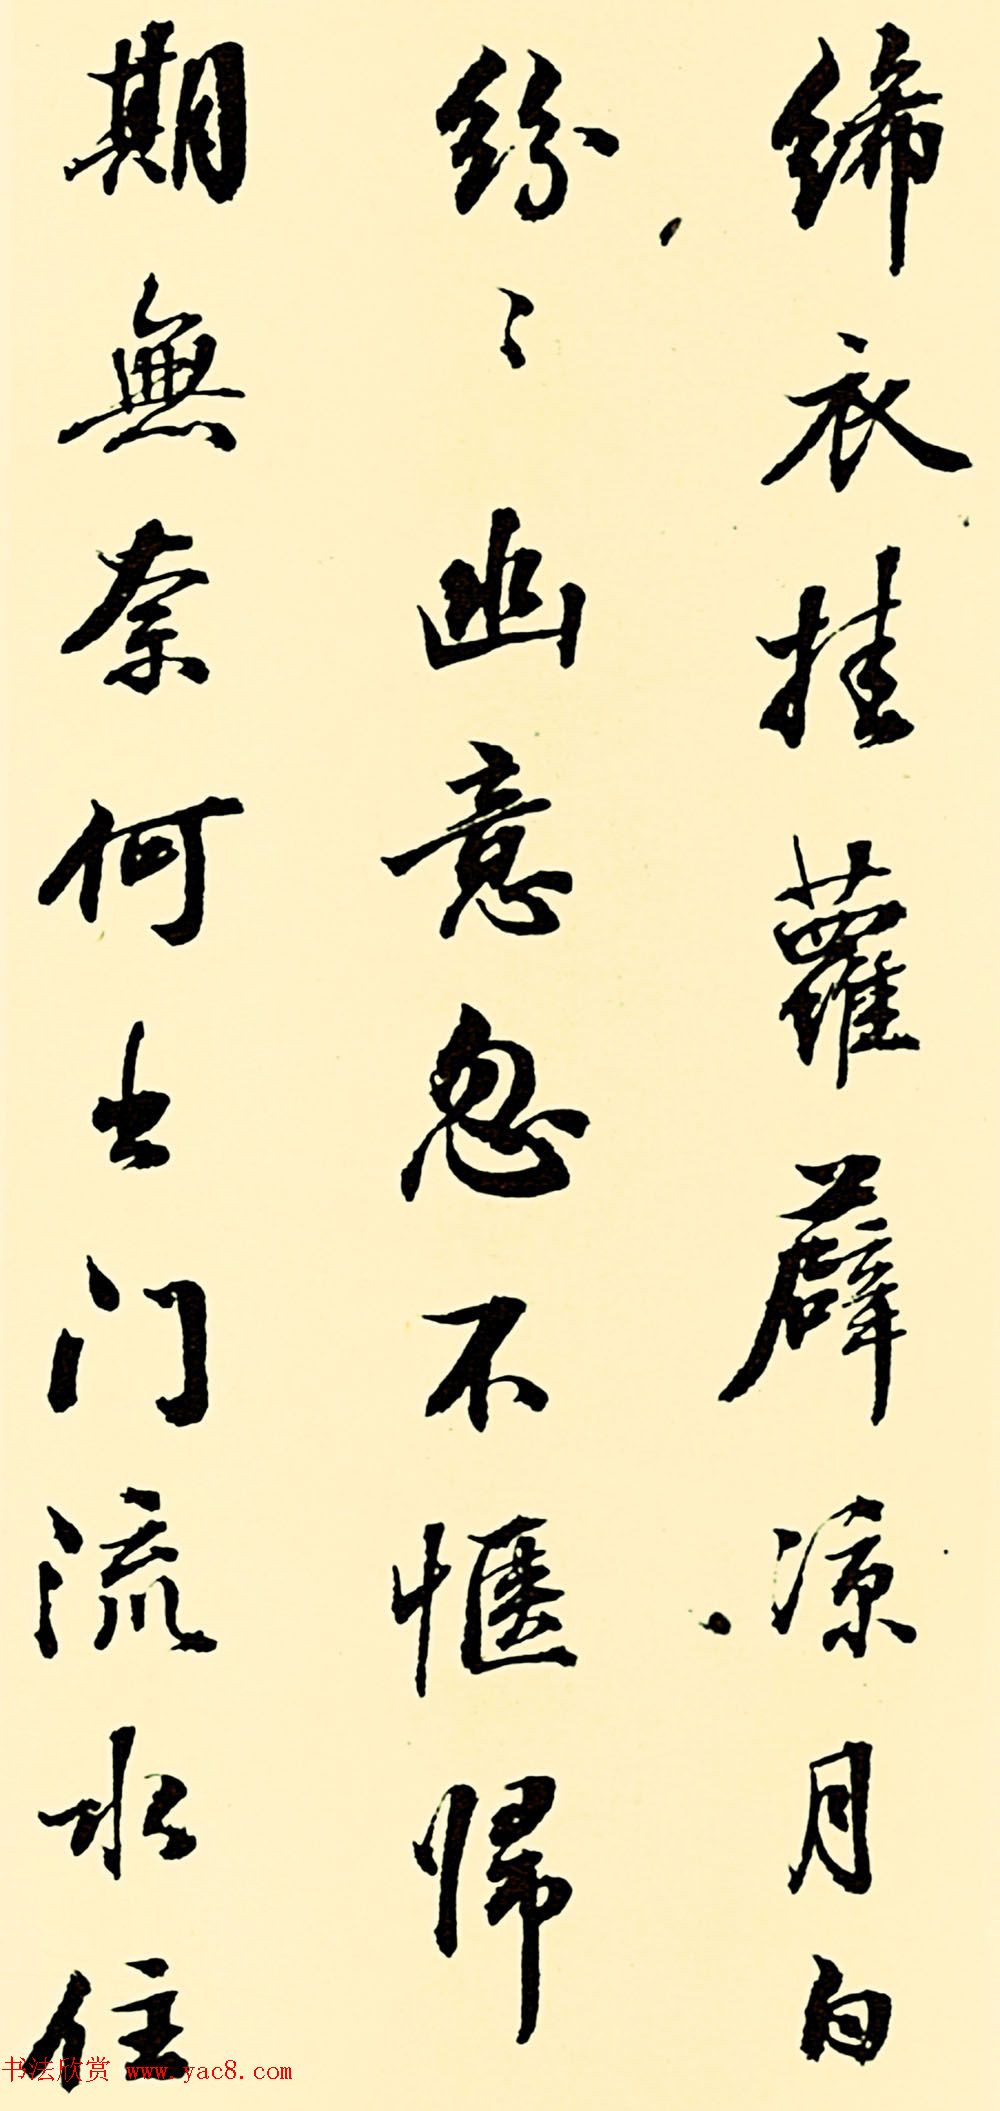 絺衣挂蘿薜凉月白
紛〻幽意忽不愜歸
期無奈何出门流水住
书法欣赏 www.yac8.com